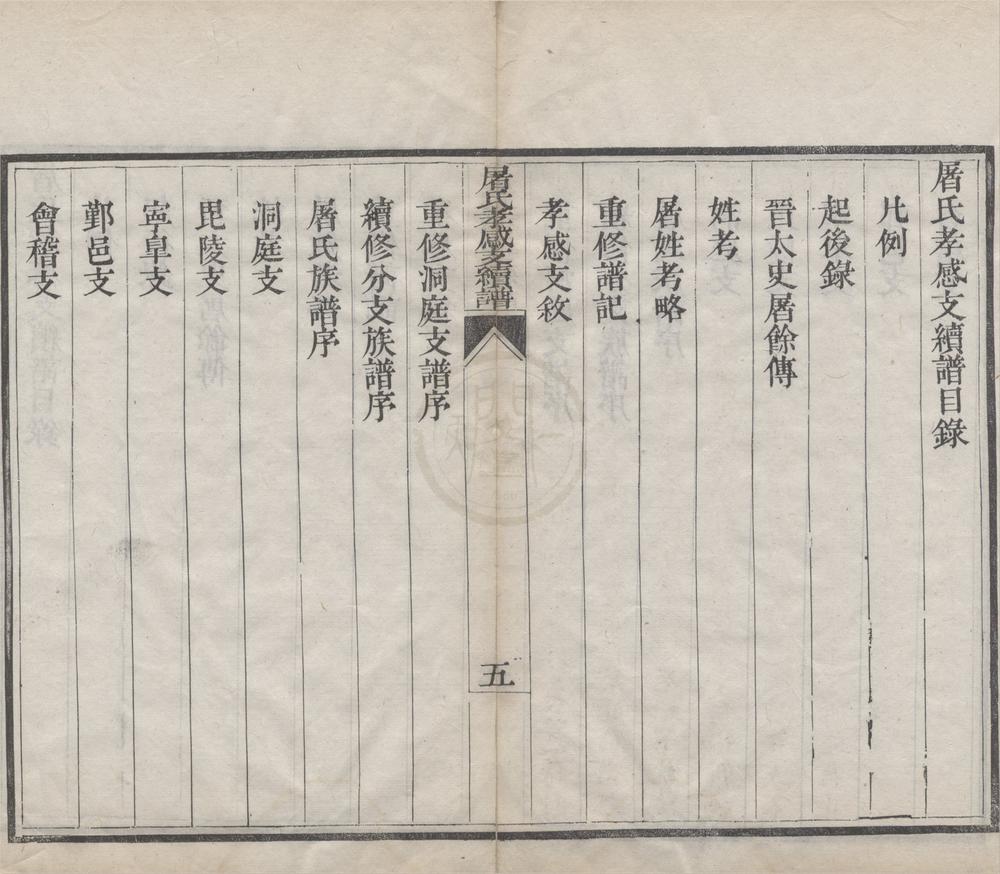 屠氏孝感支續譜目錄
凡例
起後錄
晉太史屠餘傳
姓考
屠姓考略
重修譜記
孝感支敘
屠氏孝感支續譜
五
重修洞庭支譜序
續修分支族譜序
屠氏族譜序
洞庭支
毘陵支
寧阜支
鄞邑支
會稽支